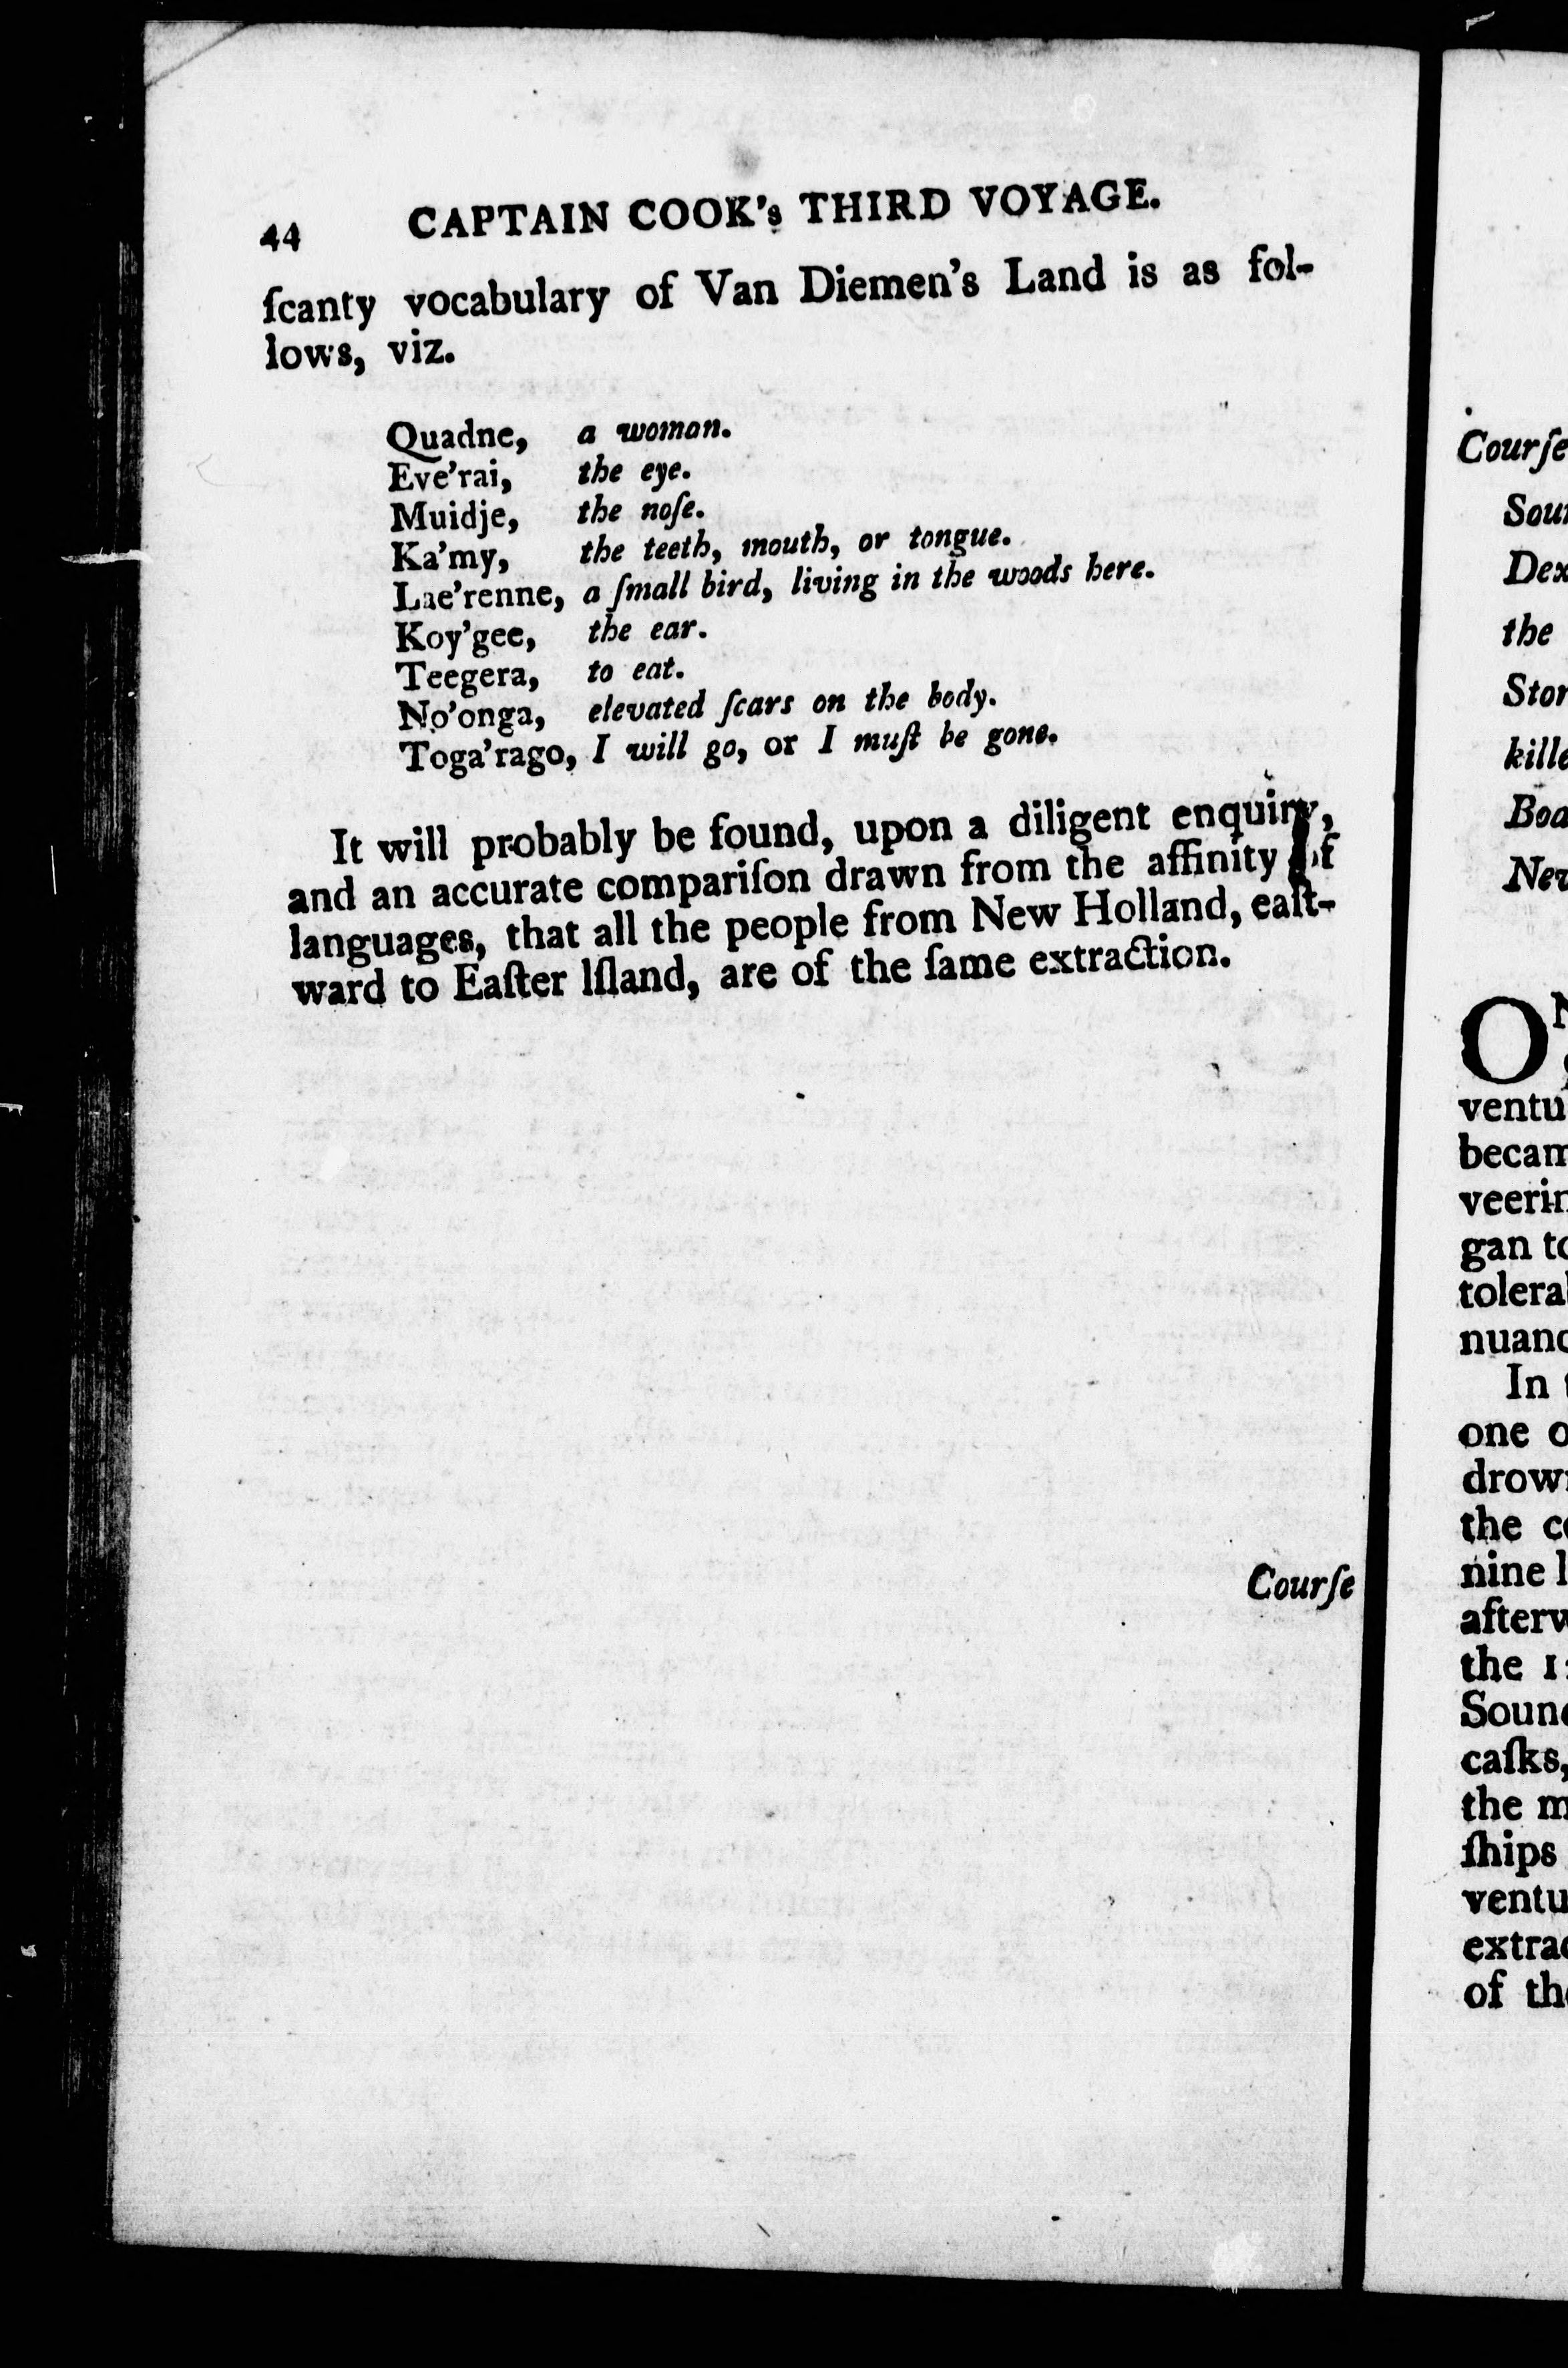 44 CAPTAIN COOK's THIRD VOYAGE.
ſcanty vocabulary of Van Diemen's Land is as fol-
lows, viz.
Quadne, a woman.
Eve'rai, the eye.
Muidje, the noſe.
Ka'my, the teeth, mouth, or tongue.
Lae'renne, a ſmall bird, living in the woods here.
Koy'gee, the ear.
Teegera, to eat.
No'onga, elevated ſcars on the body.
Toga'rago, I will go, or I muſt be gone.
It will probably be found, upon a diligent enquiry,
and an accurate compariſon drawn from the affinity of
languages, that all the people from New Holland, eaſt-
ward to Eaſter Iſland, are of the ſame extraction.
Courſe
Courſe
the
O
In
one
the
nine
the
Sound
caſks,
the
ſhips
of